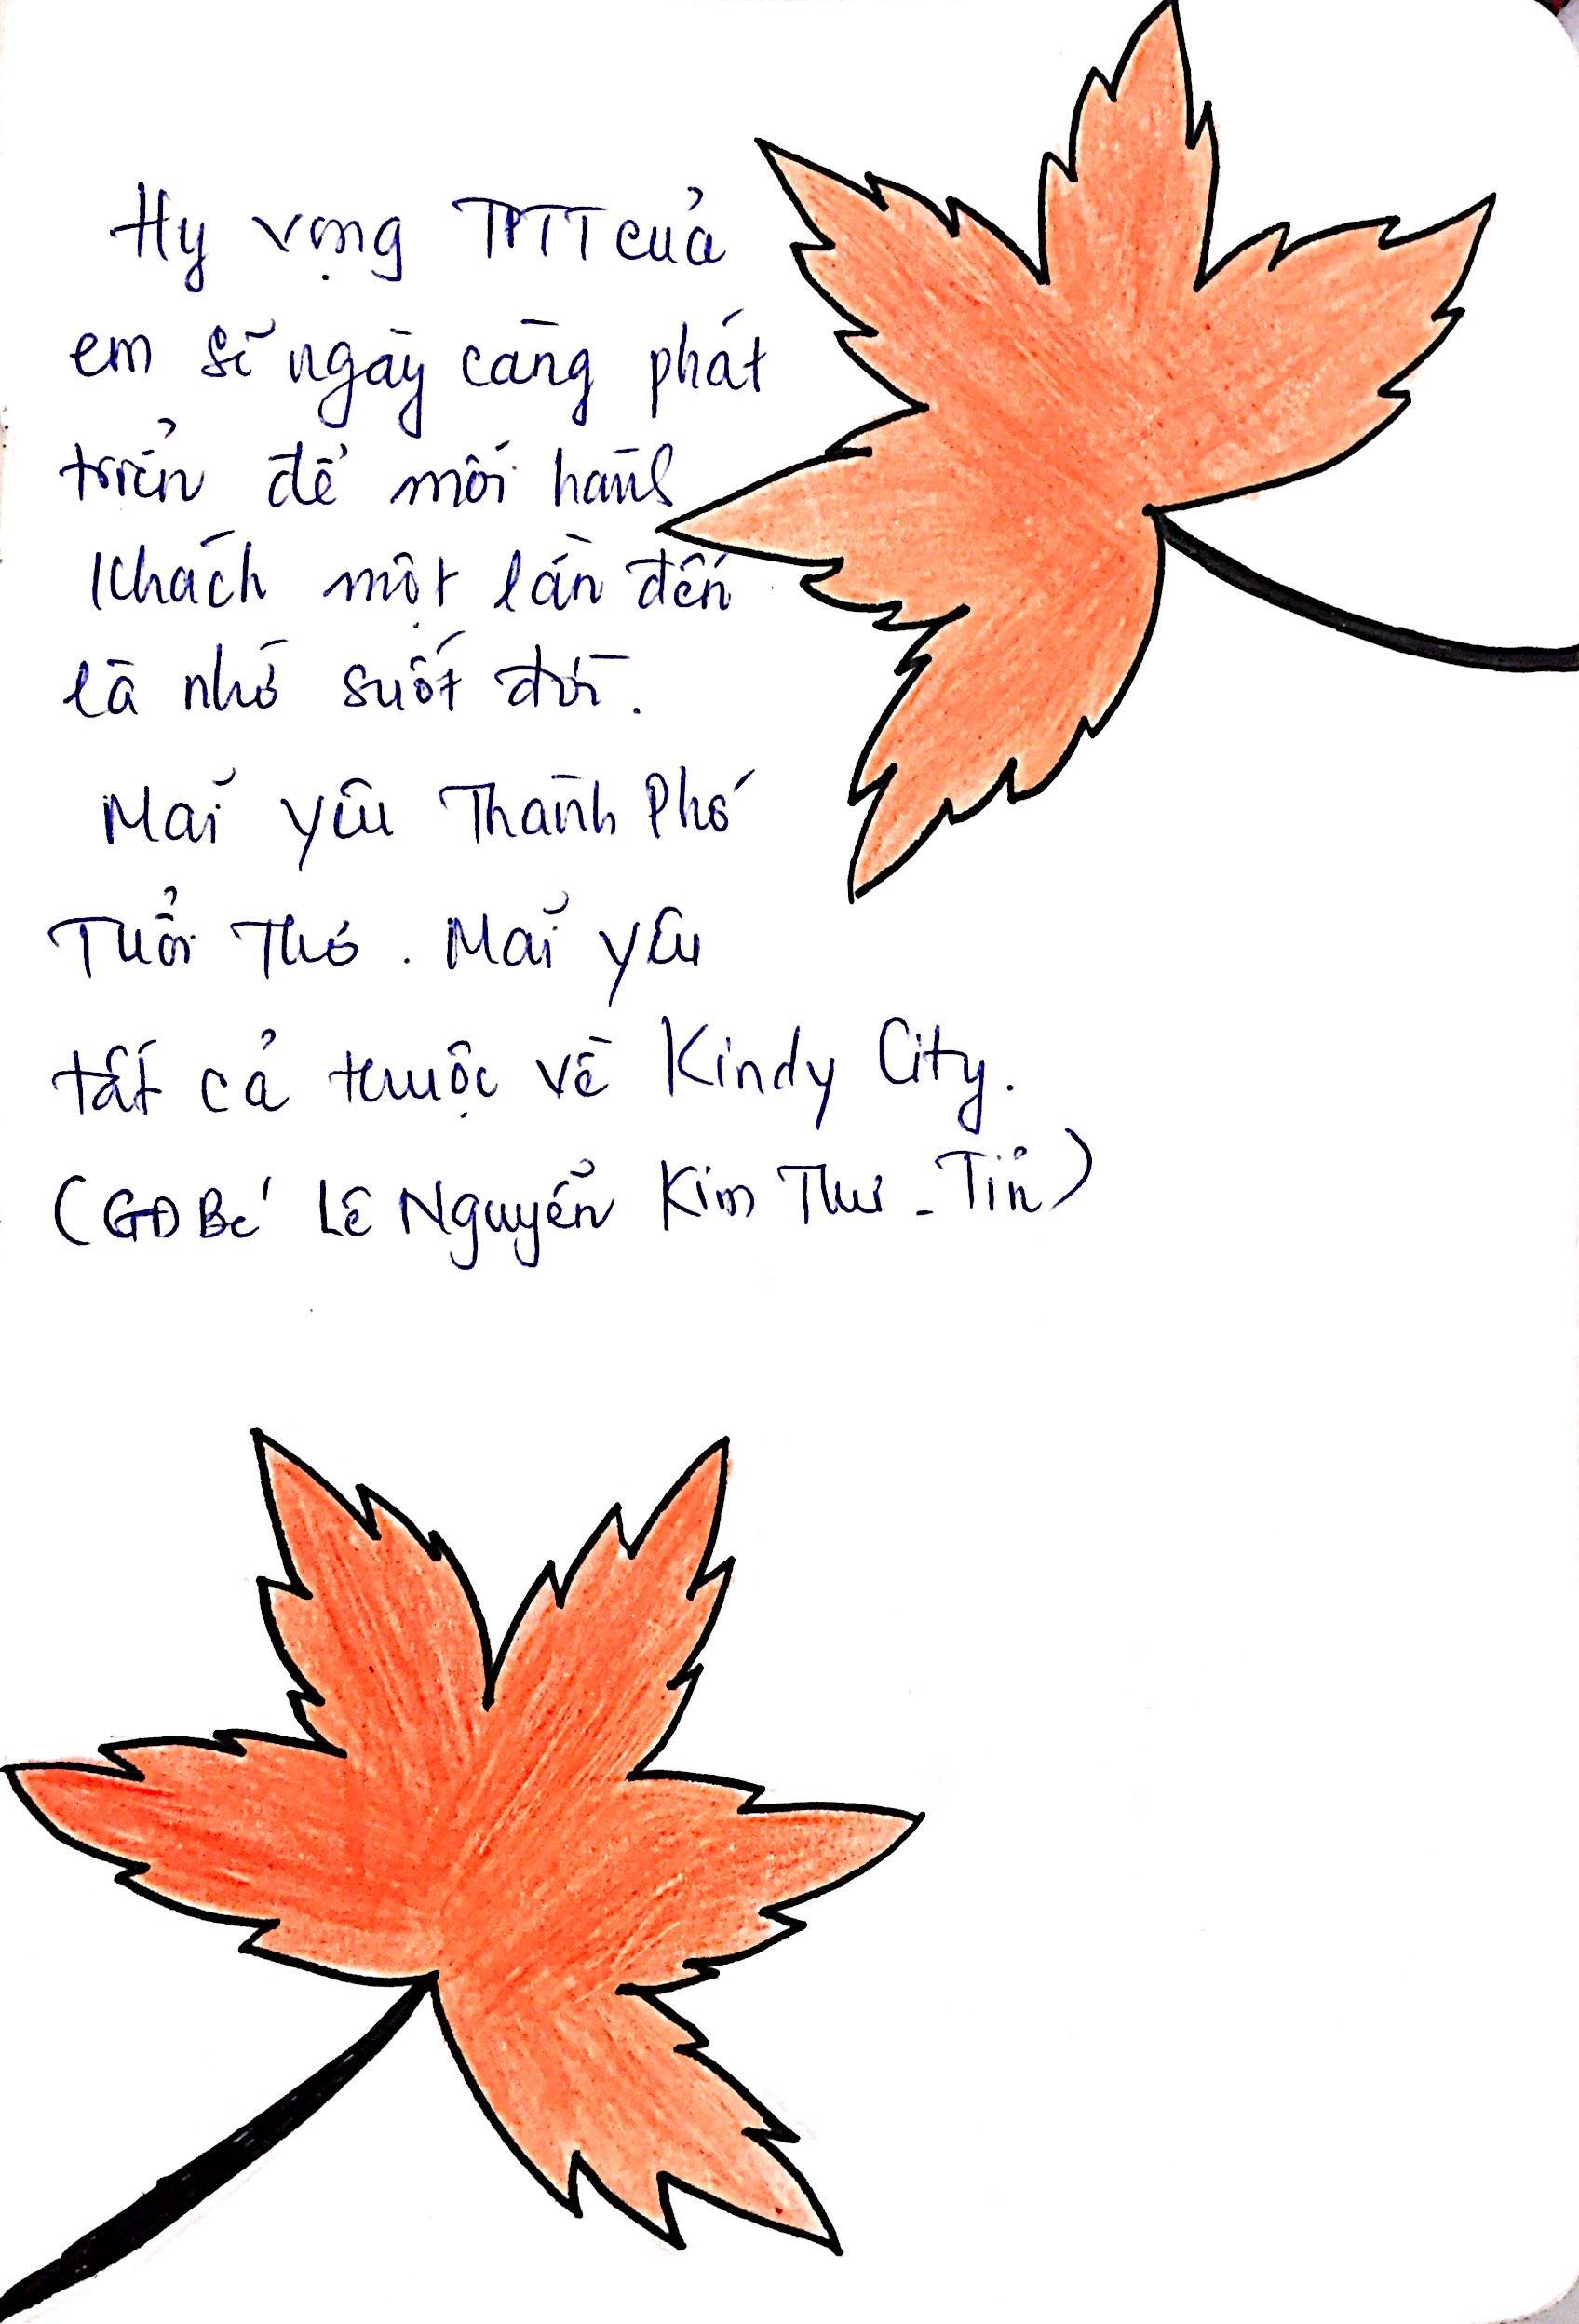 Hy vọng TPTT của
em sẽ ngày càng phát
triển để mỗi hành
khách một lần đến
là nhớ suốt đời.
Mãi yêu Thành Phố
Tuổi Thơ. Mãi yêu
tất cả thuộc về Kindy City.
(GĐ Bé Lê Nguyễn Kim Thư - Tin)